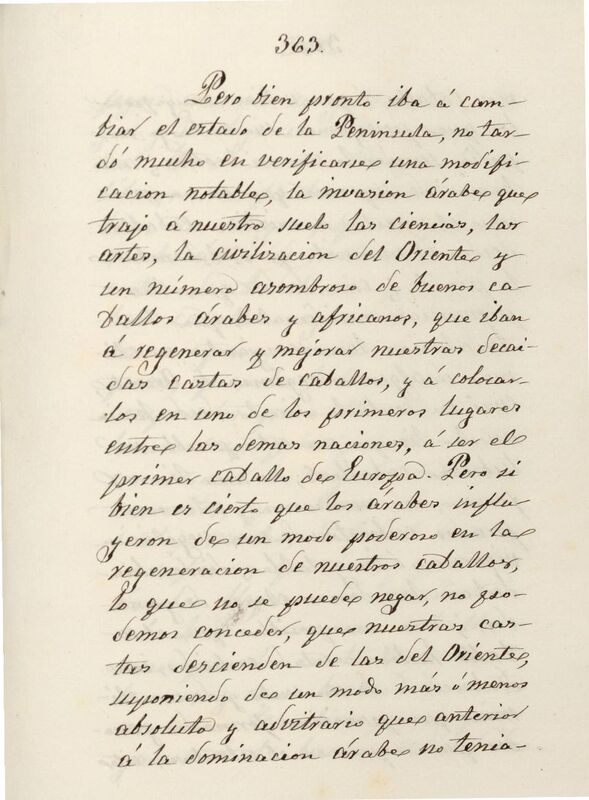 363.
Pero bien pronto iba á cam-
biar el estado de la Peninsula, no tar-
dó mucho en verificarse una modifi-
cacion notable, la invasion árabe que
trajo á nuestro suelo las ciencias, las
artes, la civilizacion del Oriente y
un número asombroso de buenos ca-
ballos árabes y africanos, que iban
á regenerar y mejorar nuestras decai-
das castas de caballos, y á colocar-
los en uno de los primeros lugares
entre las demas naciones, á ser el
primer caballo de Europa. Pero si
bien es cierto que los árabes influ
yeron de un modo poderoso en la
regeneracion de nuestros caballos,
lo que no se puede negar, no po-
demos conceder, que nuestras cas-
tas descienden de las del Oriente,
suponiendo de un modo más ó menos
absoluto y advitrario que anterior
á la dominacion árabe no tenia-